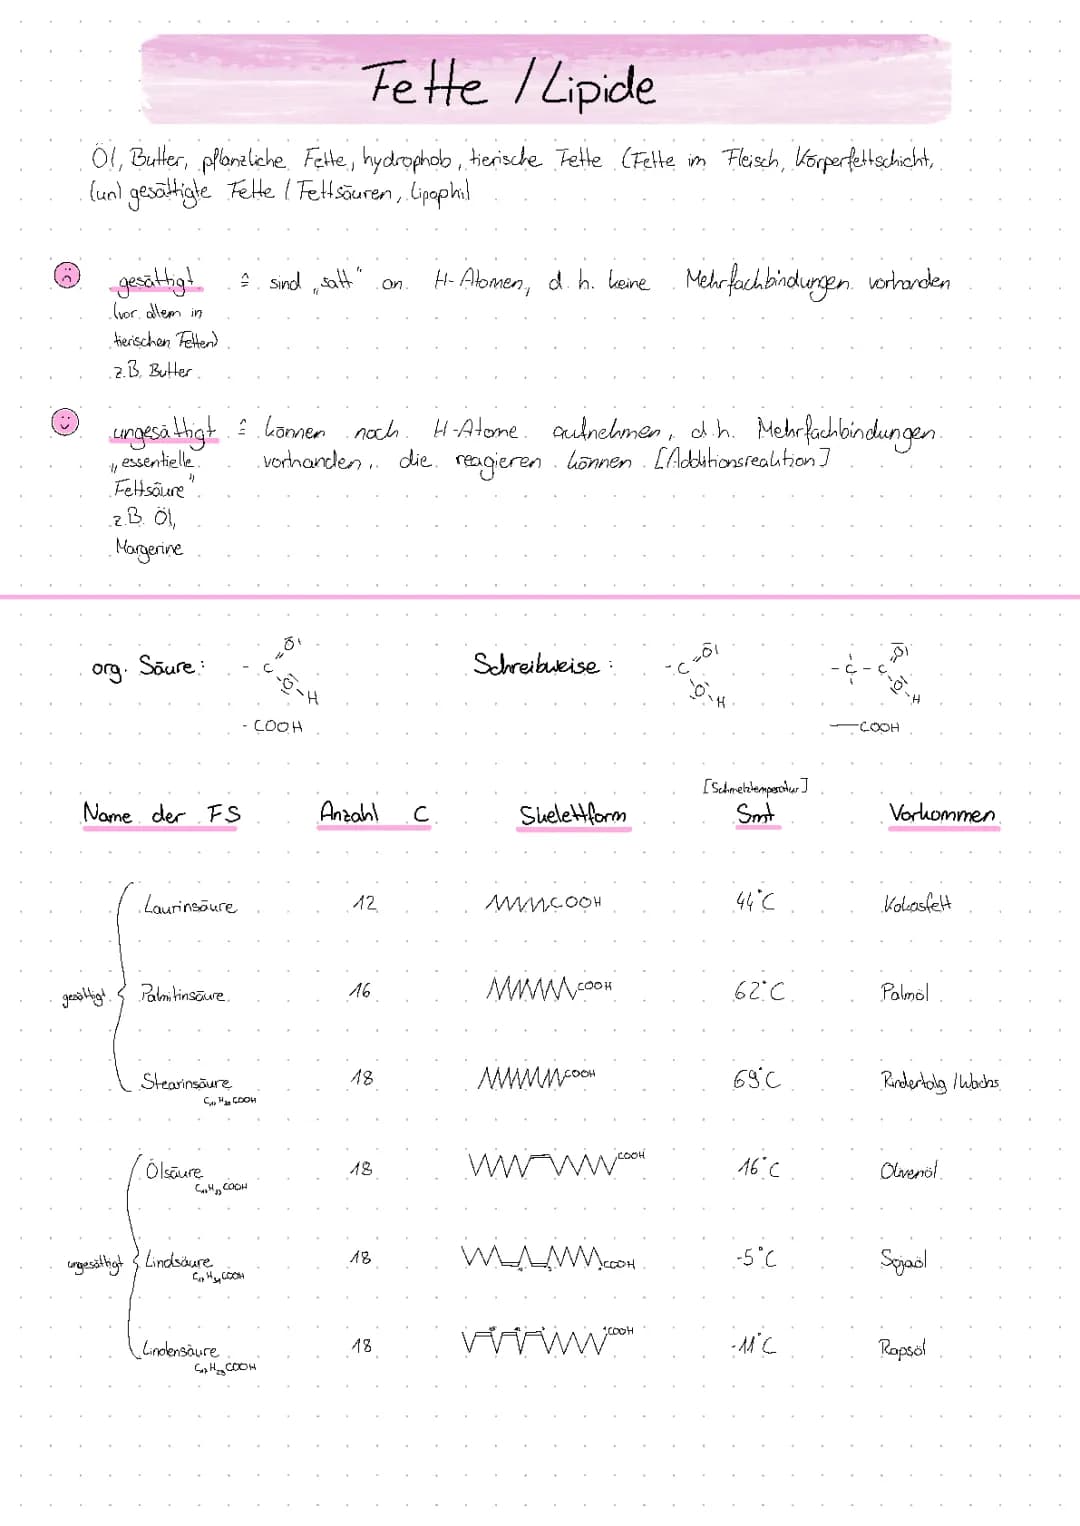 Fette / Lipide
Öl, Butter, pflanzliche Fette, hydrophob, tierische Fette (Fette im Fleisch, Körperfettschicht,
(un) gesättigte Fette / Fettsäuren, Lipophil
gesättigt ≙ sind „satt" an H-Atomen, d. h. keine Mehrfachbindungen vorhanden
(vor allem in
tierischen Fetten)
z.B. Butter
ungesättigt ≙ können noch H-Atome aufnehmen, d.h. Mehrfachbindungen
„essentielle vorhanden, die reagieren können [Additionsreaktion]
Fettsäure"
z.B. Öl,
Margerine
org. Säure: - C O O H Schreibweise: - C O O H - C - C O O H
- COOH —COOH
[Schmelztemperatur]
Name der FS Anzahl C Skelettform Smt Vorkommen
Laurinsäure 12 COOH 44°C Kokosfett
gesättigt Palmitinsäure 16 COOH 62°C Palmöl
Stearinsäure 18 COOH 69°C Rindertalg / Wachs
COOH
Ölsäure 18 COOH 16°C Olivenöl
COOH
ungesättigt Lindsäure 18 COOH -5°C Sojaöl
COOH
Linolensäure 18 COOH -11°C Rapsöl
COOH